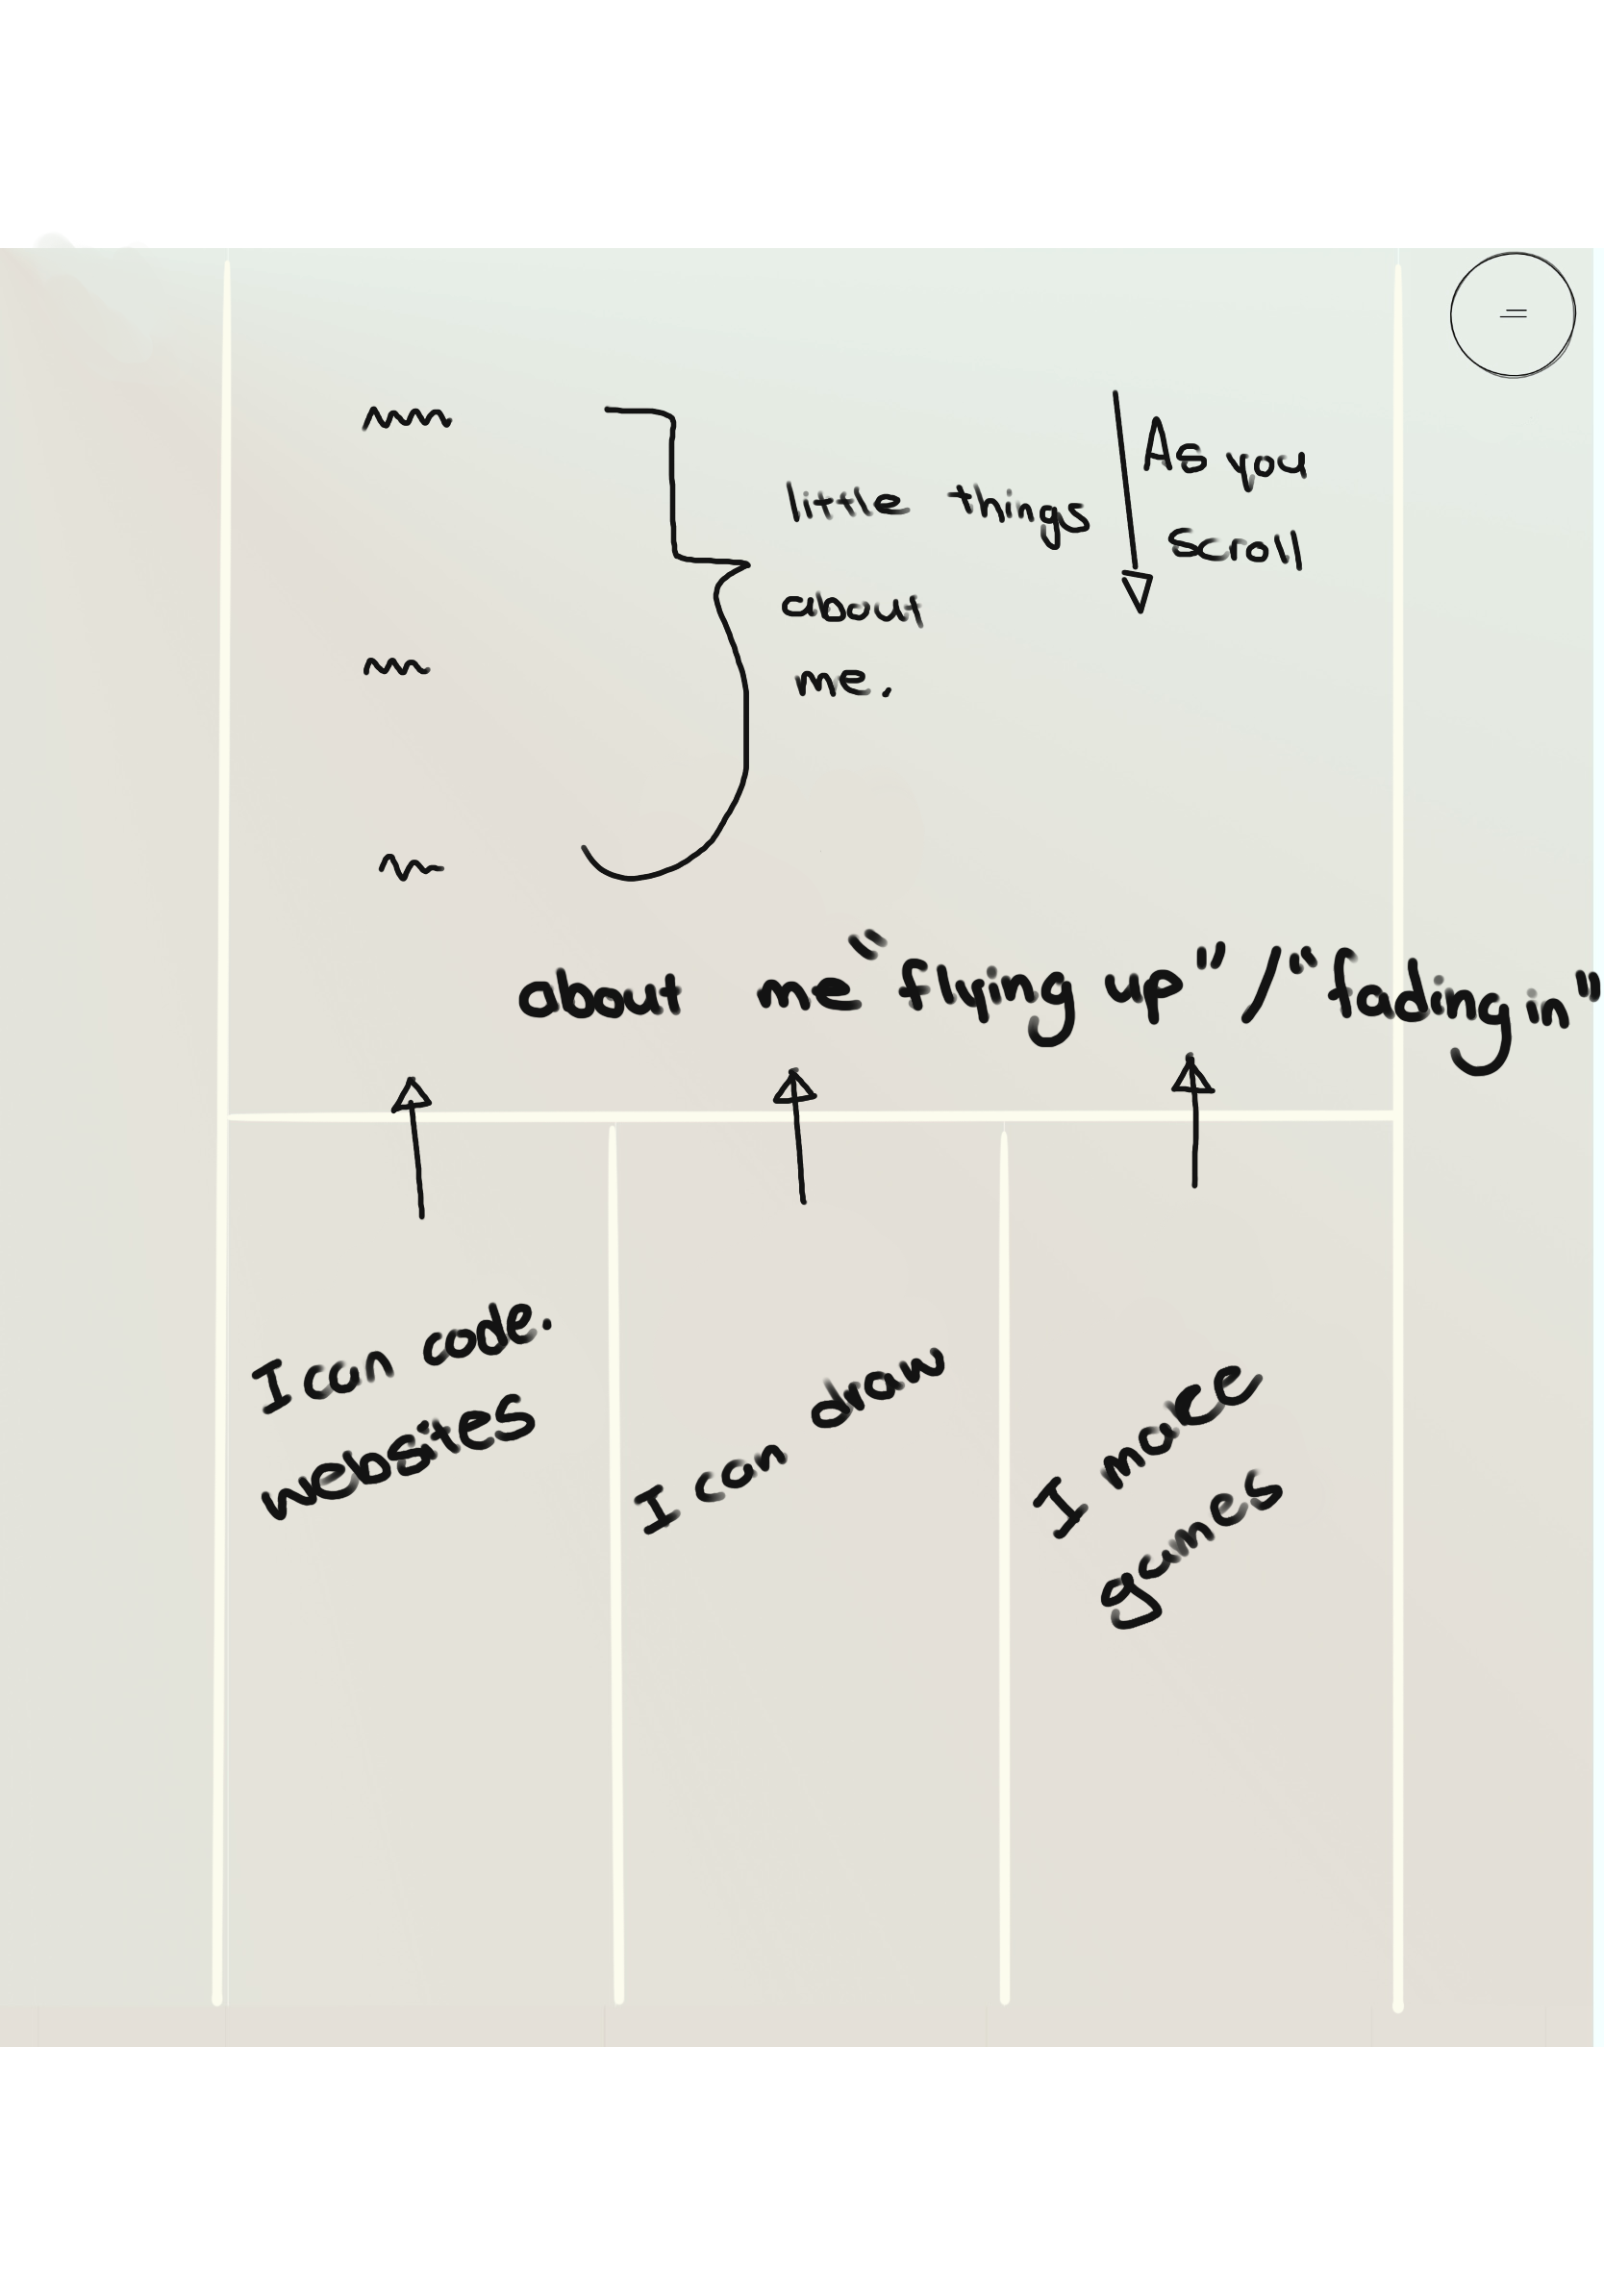 little things
about
me.
As you
scroll
about me "flying up" / "fading in"
I can code.
websites
I can draw
I make
games